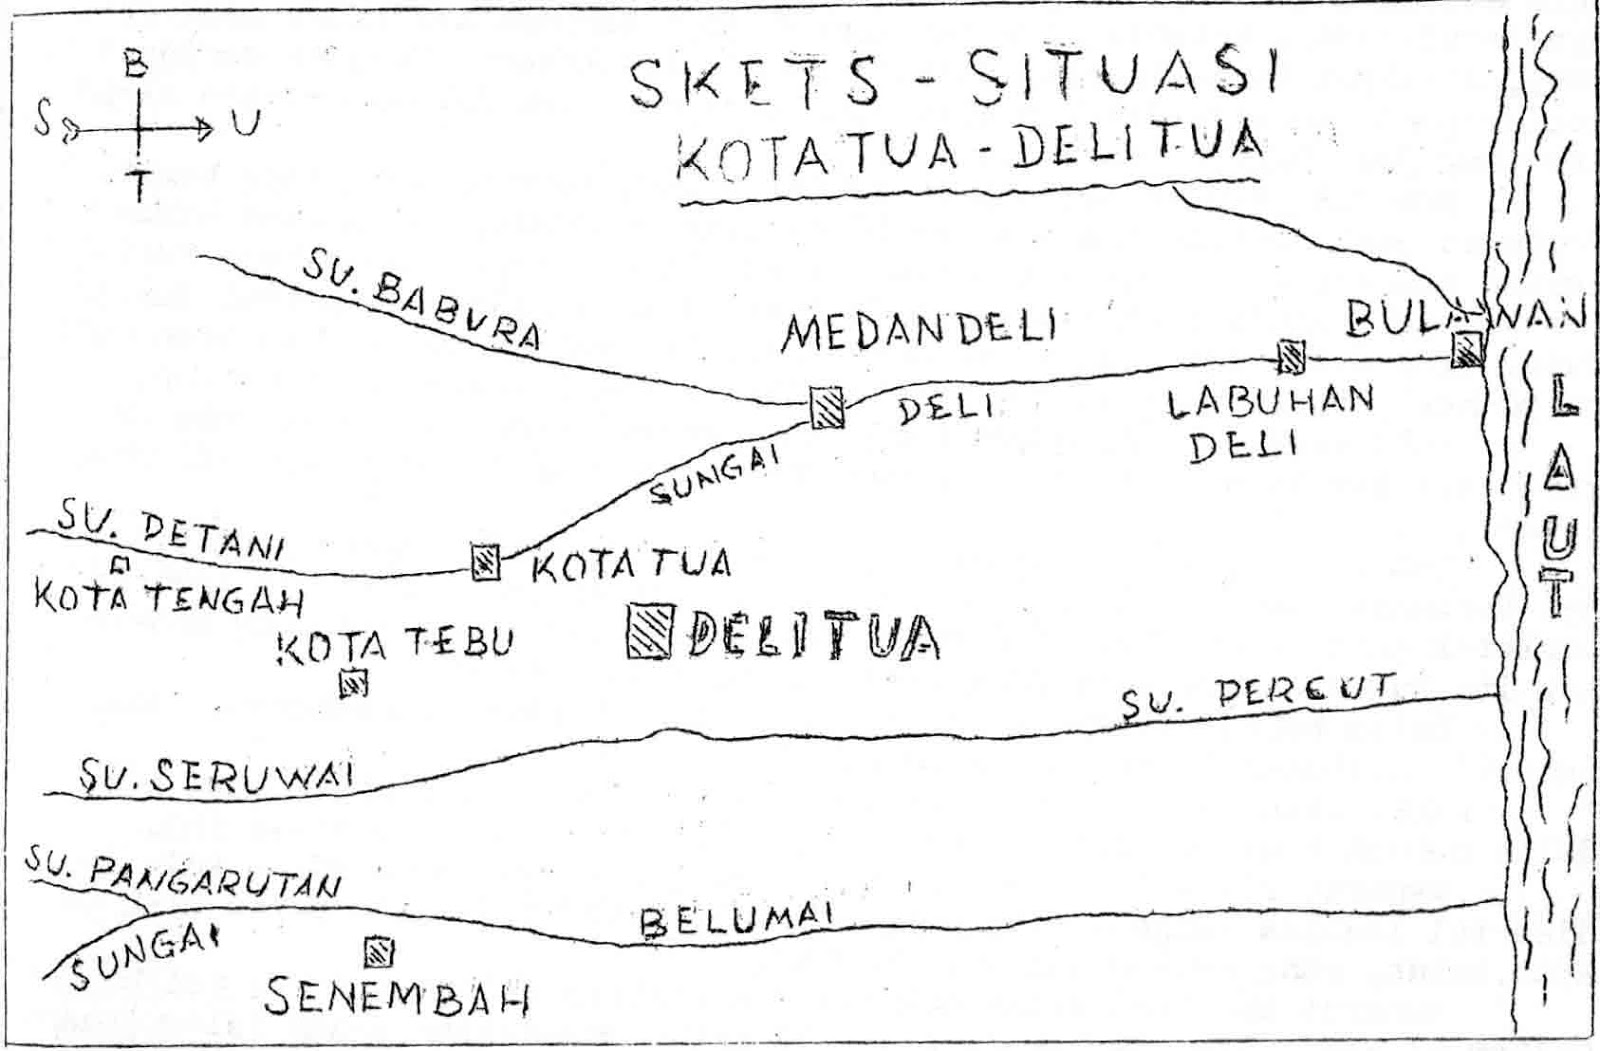 SKETS - SITUASI
KOTA TUA - DELI TUA
B
S U
T
SU. BABURA
MEDAN DELI
BULAWAN
DELI
LABUHAN
DELI
SUNGAI
LAUT
SU. DETANI
KOTA TENGAH
KOTA TUA
KOTA TEBU
DELI TUA
SU. PERCUT
SU. SERUWAI
SU. PANGARUTAN
SUNGAI
BELUMAI
SENEMBAH